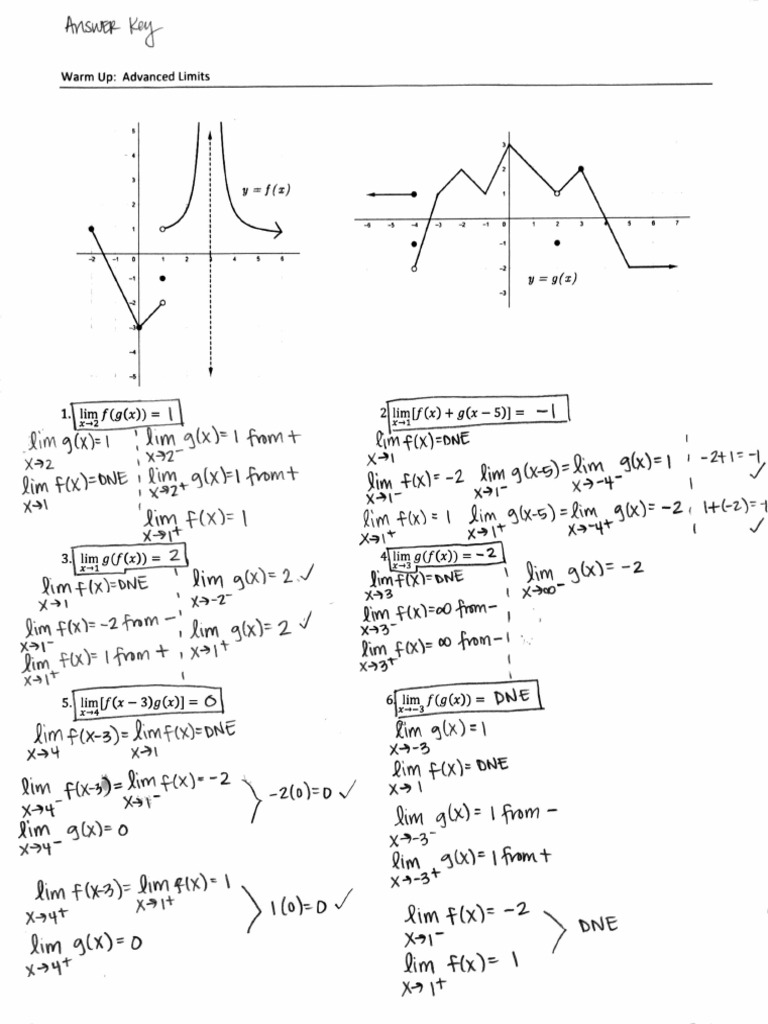 Answer Key
Warm Up: Advanced Limits
5
4
3
2
1
-2 -1 0 1 2 3 4 5 6
-1
-2
-3
-4
-5
y = f(x)
3
2
1
-6 -5 -4 -3 -2 -1 0 1 2 3 4 5 6 7
-1
-2
-3
y = g(x)
1. lim x→2 f(g(x)) = 1
lim x→2 g(x)=1
lim x→1 f(x)=DNE
lim x→2⁻ g(x)=1 from +
lim x→2⁺ g(x)=1 from +
lim x→1⁺ f(x)=1
2 lim x→1 [f(x) + g(x − 5)] = -1
lim x→1 f(x)=DNE
lim x→1⁻ f(x)= -2 lim x→1⁻ g(x-5)= lim x→-4⁻ g(x)=1 -2+1=-1 ✓
lim x→1⁺ f(x)= 1 lim x→1⁺ g(x-5)= lim x→-4⁺ g(x)= -2 1+(-2)=-1 ✓
3. lim x→1 g(f(x)) = 2
lim x→1 f(x)=DNE
lim x→1⁻ f(x)= -2 from -
lim x→1⁺ f(x)= 1 from +
lim x→-2⁻ g(x)= 2 ✓
lim x→1⁺ g(x)= 2 ✓
4 lim x→3 g(f(x)) = -2
lim x→3 f(x)=DNE
lim x→3⁻ f(x)=∞ from -
lim x→3⁺ f(x)= ∞ from -
lim x→∞⁻ g(x)= -2
5. lim x→4 [f(x − 3)g(x)] = 0
lim x→4 f(x-3)= lim x→1 f(x)=DNE
lim x→4⁻ f(x-3)= lim x→1⁻ f(x)= -2
lim x→4⁻ g(x)= 0
-2(0)=0 ✓
lim x→4⁺ f(x-3)= lim x→1⁺ f(x)= 1
lim x→4⁺ g(x)= 0
1(0)=0 ✓
6. lim x→−3 f(g(x)) = DNE
lim x→-3 g(x)= 1
lim x→1 f(x)= DNE
lim x→-3⁻ g(x)= 1 from -
lim x→-3⁺ g(x)= 1 from +
lim x→1⁻ f(x)= -2
lim x→1⁺ f(x)= 1
DNE